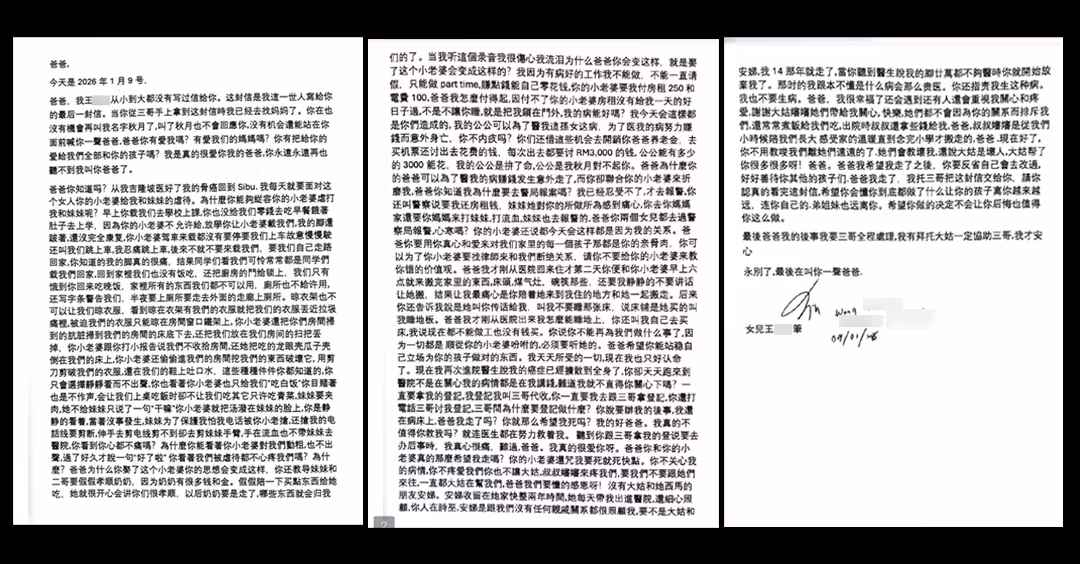 爸爸,
今天是 2026 年 1 月 9 号,
爸爸, 我王 从小到大都没有写过信给你。这封信是我這一世人寫給你
的最后一封信。當你從三哥手上拿到這封信時我已經去找妈妈了。你在也
沒有機會再叫我名字秋月了,叫了秋月也不會回應你,没有机会還能站在你
面前喊你一聲爸爸,爸爸你有愛我嗎? 有愛我们的媽媽嗎? 你有把给你的
愛给我們全部和你的孩子嗎? 我是真的很爱你的爸爸,你永遠永遠再也
聽不到我叫你爸爸了。
爸爸你知道吗? 从我吉隆玻医好了我的骨癌回到 Sibu. 我每天就要面对這
个女人你的小老婆给我和妹妹的虐待。為什麼你能夠縱容你的小老婆打
我和妹妹呢? 早上你载我们去學校上課,你也沒給我们零錢去吃早餐餓著
肚子去上学, 因為你的小老婆不允許給,放學你让小老婆載我們,我的腳還
跛著,還没完全康复,你小老婆驾車来載都沒有要停要我们上车故意慢慢駛
还叫我们跳上車,我忍痛跳上車,後來不就不要來載我們, 要我们自己走路
回家,你知道的我的脚真的很痛, 結果同学们看我們可怜常常都是同學们
载我們回家,回到家裡我们也没有饭吃, 还把廚房的門给锁上, 我们只有
饿到你回来吃晚饭, 家裡所有的東西我们都不可以用, 廁所也不給许用,
还写字条警告我们, 半夜要上廁所要走去外面的走廊上廁所。晾衣架也不
可以让我们晾衣服, 看到晾在衣架有我們的衣服就把我們的衣服丟近垃圾
痛裡,被迫我們的衣服只能晾在房間窗口鐵架上,你小老婆還把你們房間掃
到的肮脏掃到我們的房間的床底下去,还把我们放在我们房间的扫把丟
掉, 你小老婆跟你打小报告説我們不收拾房間,还她把吃的龙眼壳瓜子壳
倒在我們的床上,你小老婆还偷偷進我們的房間挖我們的東西破壞它, 用剪
刀剪破我們的衣服,還在我们的鞋上吐口水, 這些種種件件你都知道的,你
只會選擇靜靜看而不出聲,你也看著你小老婆也只给我们"吃白饭"你目賭著
也是不作声,会让我们上桌吃飯时卻不让我们吃其它只许吃青菜,妹妹要夹
肉,她不给妹妹只说了一句"干嘛"你小老婆就把汤潑在妹妹的脸上,你是靜
靜的看着,當著沒事發生,妹妹为了保護我怕我电話被你小老搶,还搶我的电
話线要剪断,伸手去剪电线剪不到卻去剪妹妹手臂,手在流血也不帶妹妹去
醫院,你看到你心都不痛嗎? 為什麼你能看著你小老婆對我們動粗,也不出
聲,過了好久才說一句"好了啦" 你看著我們被虐待都不心疼我們嗎? 為什
麼? 爸爸为什么你娶了這个小老婆你的思想会变成这样, 你还教导妹妹和
二哥要假假孝顺奶奶, 因為奶奶有很多钱和金。假假陪一下买點东西给她
吃, 她就很开心会讲你们很孝順, 以后奶奶要是走了,哪些东西就会归我
们的了。当我听這個录音我很傷心我流泪为什么爸爸你会变这样, 就是娶
了这个小老婆会变成這样的? 我因为有病好的工作我不能做, 不能一直请
假, 只能做 part time,賺點錢能自己零花錢,你的小老婆要我付房租 250 和
電費 100,爸爸我怎麼付得起,因付不了你的小老婆房租沒有給我一天的好
日子過,不是不讓你睡,就是把我鎖在門外,我的病能好嗎? 我今天会這樣都
是你們造成的, 我的公公可以為了醫我這孫女这病, 为了医我的病努力賺
錢而意外身亡, 你不内疚吗? 你们还借這些机会去開銷你爸爸养老金, 去
买机票还讨出去花费的钱, 每次出去都要讨 RM3,000 的钱,公公能有多少
的 3000 能花, 我的公公是拼了命,公公是我秋月對不起你。爸爸為什麼你
的爸爸可以為了醫我的病賺錢发生意外走了,而你却聯合你的小老婆來折
磨我,爸爸你知道我為什麼要去警局報案嗎? 我已經忍受不了,才去報警,你
还叫警察说要我还房租钱, 妹妹她對你的所做所為感到痛心,你去你媽媽
家還要你媽媽来打妹妹,打流血,妹妹也去報警的,爸爸你兩個女兒都去過警
察局報警,心寒嗎? 你的小老婆还说都今天会這样都是因为我的关系。爸
爸你要用你真心和爱来对我们家里的每一個孩子那都是你的亲骨肉, 你可
以为了你小老婆要找律師来和我們断绝关系, 请你不要给你的小老婆来教
你错的价值观。爸爸我才刚从医院回来住才第二天你便和你小老婆早上六
点就来搬完家里的東西,床頭,煤气灶, 碗筷那些, 还要我静静的不要讲话
让她搬, 结果让我最痛心是你陪着她来到我住的地方和她一起搬走。后来
你还告訴我說是她叫你传话給我, 叫我不要睡那张床, 说床铺是她买的叫
我睡地板。爸爸我才刚从医院出来我怎麼能睡地上, 你还叫我自己去买
床,我说现在都不能做工也没有钱买。你说你不能再為我们做什么事了,因
为一切都是 順從你的小老婆吩咐的,必须要听她的。爸爸希望你能站稳自
己立场为你的孩子做对的东西。我天天所受的一切,現在我也只好认命
了。現在我再次進院醫生說我的癌症已經擴散到全身了,你卻天天跑來到
醫院不是在關心我的病情都是在我講錢,難道我就不直得你關心下嗎? 一
直要拿我的登記,我登記我叫三哥代收,你一直要我去跟三哥拿登记,你還打
電話三哥讨我登記,三哥問為什麼要登記做什麼? 你說要辦我的後事, 我還
在病床上,爸爸我走了吗? 你就那么希望我死吗? 我的好爸爸。我真的不
值得你救我吗? 就连医生都在努力救着我。聽到你跟三哥拿我的登说要去
办后事時, 我真心很痛, 難過,爸爸。我真的很爱你呀。爸爸你和你的小
老婆真的那麽希望我走嗎? 你的小老婆還咒我要死就死快點。你不关心我
的病情, 你不疼爱我們你也不讓大姑,叔叔嬸嬸来疼我們, 要我們不要跟她們
来往,一直都大姑在幫我們,爸爸我們要懂的感恩呀! 没有大姑和她西馬的
朋友安娣。安娣收留在她家快整兩年時間,她每天帶我出進醫院,還細心照
顧,你人在詩巫, 安娣是跟我們沒有任何親戚關系都很照顧我,要不是大姑和
安娣,我 14 那年就走了,當你聽到醫生說我的腳廿萬都不夠醫時你就開始放
棄我了。那时的我跟本不懂是什么病会那么贵医。你还指责我生这种病,
我也不要生病。爸爸, 我很幸福了还会遇到还有人還會重視我關心和疼
愛,謝謝大姑嬸嬸她們帶给我關心, 快樂,她們都不會因為你的關系而排斥我
們,還常常煮飯給我們吃,出院時叔叔還拿些錢給我,爸爸,叔叔嬸嬸是從我們
小時候陪我們長大感受家的溫暖直到念完小學才搬走的,爸爸,現在好了,
你不用教唆我們離她們遠遠的了,她們會救壞我,還說大姑是壞人,大姑幫了
你很多很多呀! 爸爸。爸爸我希望我走了之後, 你要反省自己會去改過,
好好善待你其他的孩子们.爸爸我走了, 我托三哥把這封信交给你, 請你
認真的看完這封信,希望你会懂你到底都做了什么让你的孩子离你越来越
远, 连你自己的.弟姐妹也远离你。希望你做的决定不会让你后悔也值得
你这么做。
最後爸爸我的後事我要三哥全程處理,我有拜托大姑一定協助三哥,我才安
心
永別了,最後在叫你一聲爸爸,
Wong
女兒王 筆
09/01/26